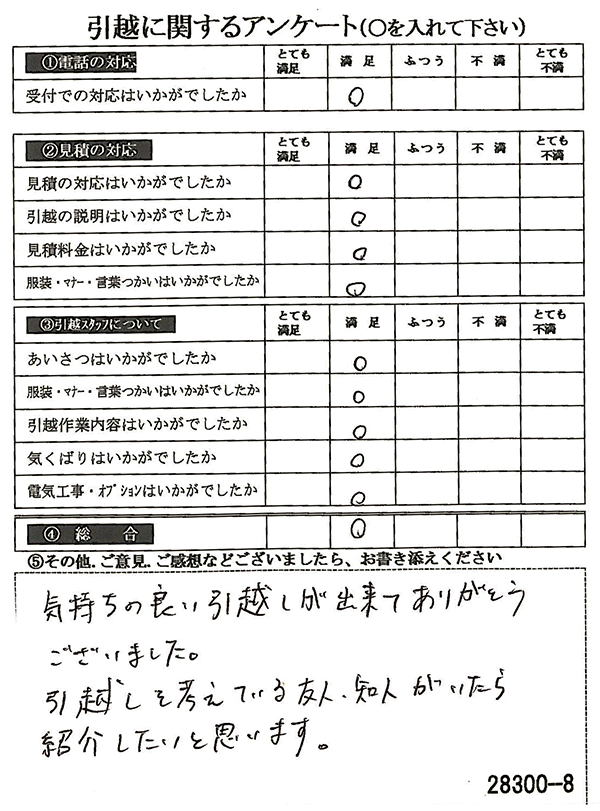 引越に関するアンケート(○を入れて下さい)
①電話の対応 とても満足 満足 ふつう 不満 とても不満
受付での対応はいかがでしたか ○
②見積の対応 とても満足 満足 ふつう 不満 とても不満
見積の対応はいかがでしたか ○
引越の説明はいかがでしたか ○
見積料金はいかがでしたか ○
服装・マナー・言葉つかいはいかがでしたか ○
③引越スタッフについて とても満足 満足 ふつう 不満 とても不満
あいさつはいかがでしたか ○
服装・マナー・言葉つかいはいかがでしたか ○
引越作業内容はいかがでしたか ○
気くばりはいかがでしたか ○
電気工事・オプションはいかがでしたか ○
④総合 ○
⑤その他.ご意見.ご感想などございましたら、お書き添えください
気持ちの良い引越しが出来てありがとう
ございました。
引越しを考えている友人、知人がいたら
紹介したいと思います。
28300-8